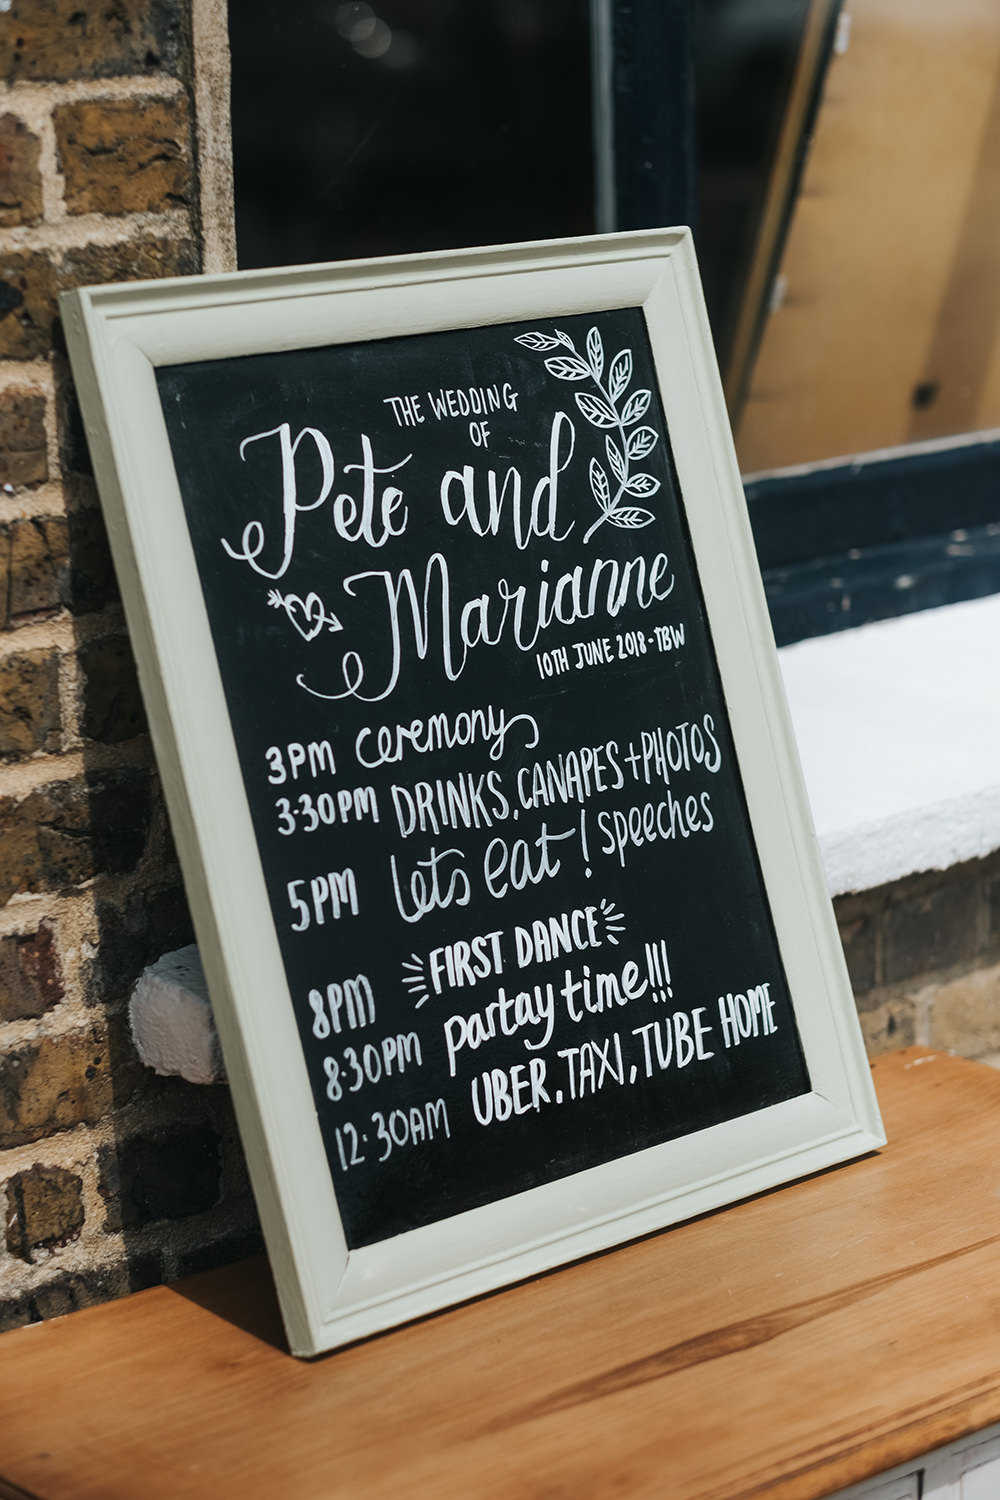 THE WEDDING
OF
Pete and
Marianne
10TH JUNE 2018-TBW
3PM ceremony
3.30PM DRINKS, CANAPES+PHOTOS
5PM lets eat! speeches
8PM FIRST DANCE
8.30PM partay time!!!
12.30AM UBER, TAXI, TUBE HOME